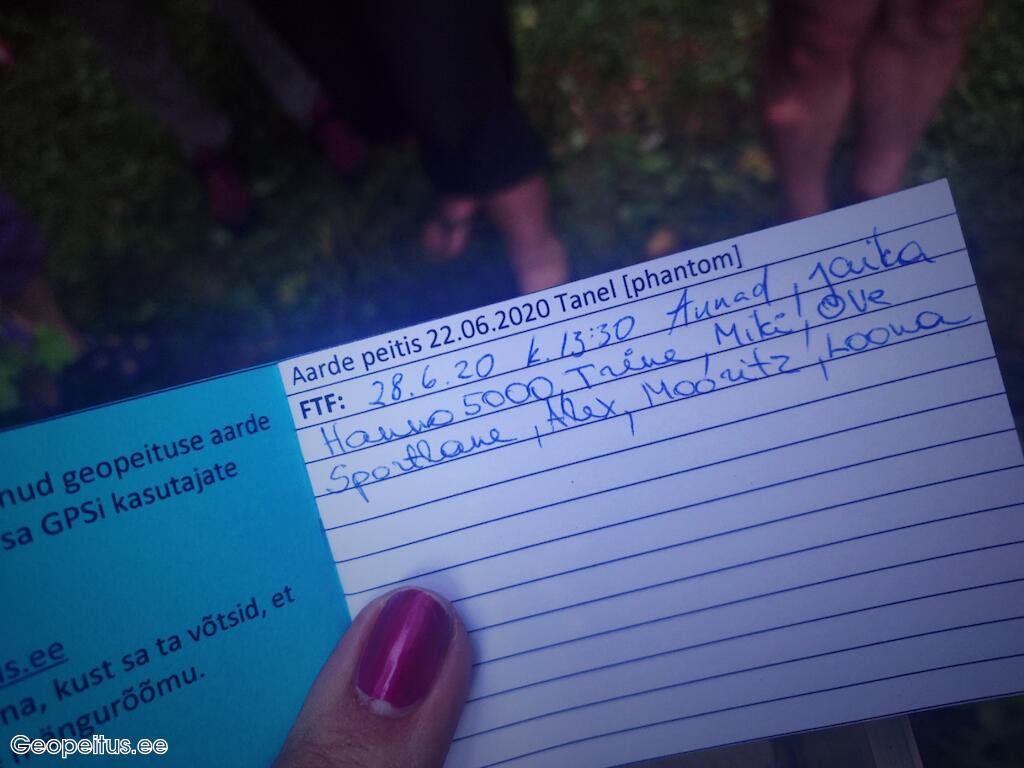 Aarde peitis 22.06.2020 Tanel [phantom]
FTF: 28.6.20 k. 13:30 Annad, jaika
Hanno5000, Triine, Miki, Ove
Sportlane, Alex, Mooritz, Loona
nud geopeituse aarde
sa GPSi kasutajate
us.ee
na, kust sa ta võtsid, et
mängurõõmu.
Geopeitus.ee